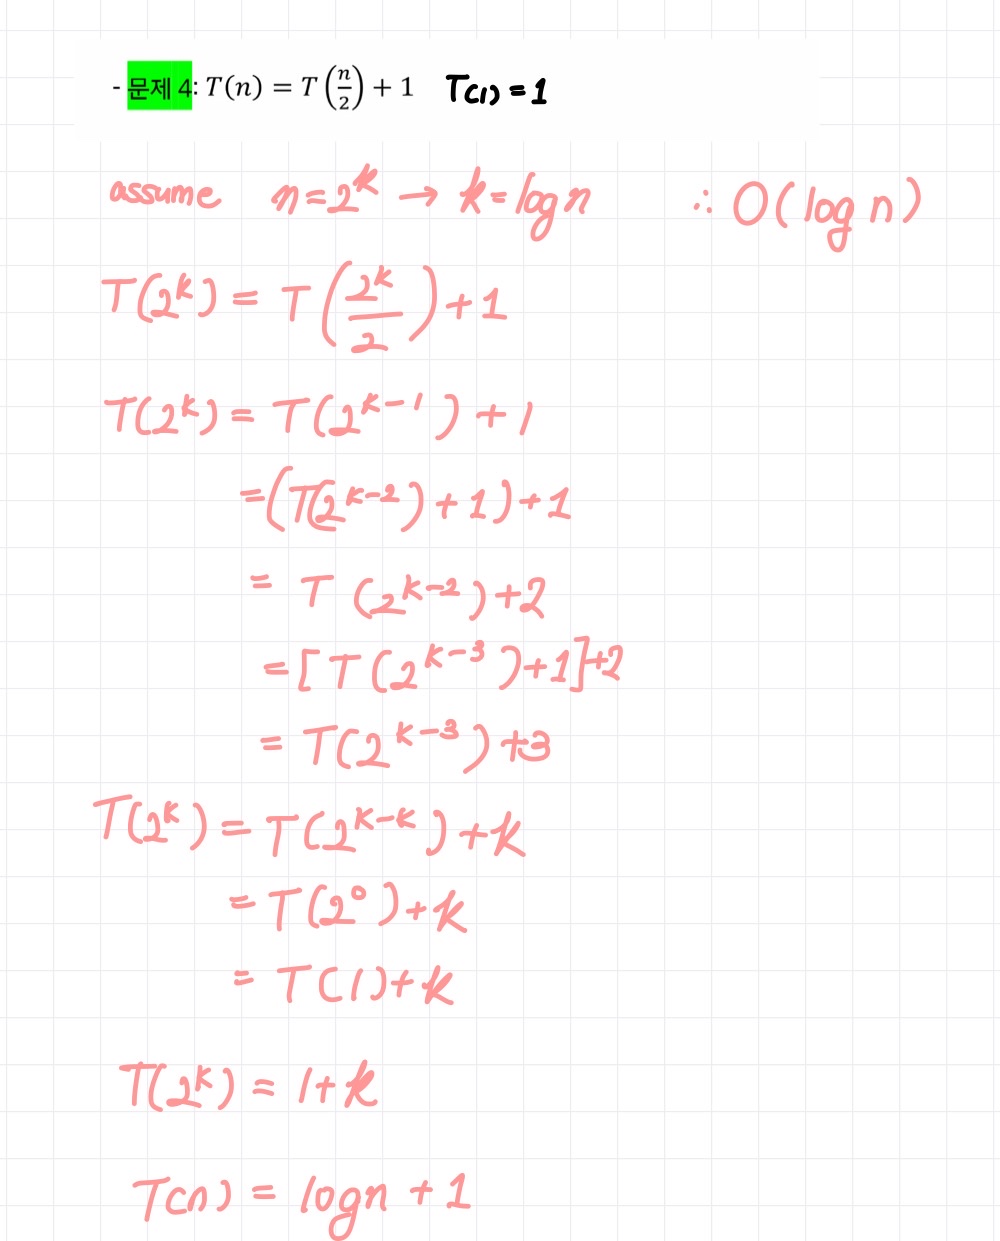 - 문제 4: T(n) = T(n/2) + 1   T(1) = 1
assume n=2^k → k=log n   ∴ O(log n)
T(2^k) = T(2^k/2) + 1
T(2^k) = T(2^(k-1)) + 1
=(T(2^(k-2)) + 1) + 1
= T(2^(k-2)) + 2
= [T(2^(k-3)) + 1] + 2
= T(2^(k-3)) + 3
T(2^k) = T(2^(k-k)) + k
= T(2^0) + k
= T(1) + k
T(2^k) = 1 + k
T(n) = log n + 1